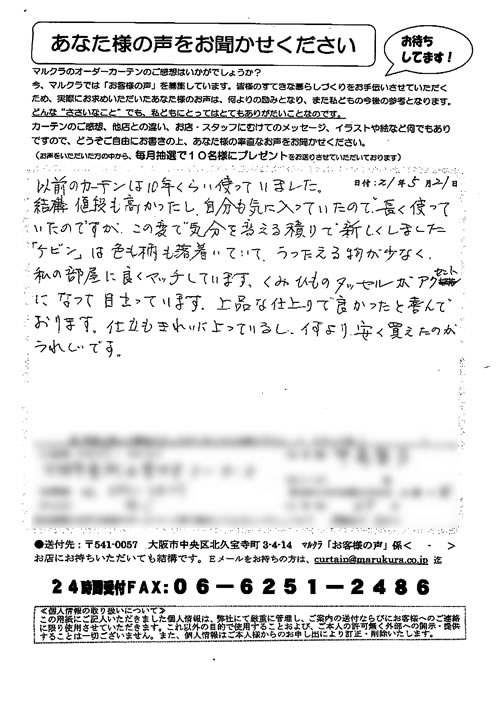 あなた様の声をお聞かせください
お待ち
してます!
マルクラのオーダーカーテンのご感想はいかがでしょうか?
今、マルクラでは「お客様の声」を募集しています。皆様のすてきな暮らしづくりをお手伝いさせていただく
ため、実際にお求めいただいたあなた様のお声は、何よりの励みとなり、また私どもの今後の参考となります。
どんな“ささいなこと”でも、私どもにとってはとてもありがたいことなのです。
カーテンのご感想、他店との違い、お店・スタッフにむけてのメッセージ、イラストや絵など何でもあり
ですので、どうぞご自由にお書きの上、あなた様の率直なお声をお聞かせください。
(お声をいただいた方の中から、毎月抽選で10名様にプレゼントをお送りさせていただいております)
日付:21年5月21日
以前のカーテンは10年くらい使っていました。
結構値段も高かったし、自分も気に入っていたので、長く使って
いたのですが、この度で気分を替える積りで新しくしました
「ケビン」は色も柄も落着いていて、うったえる物が少なく、
私の部屋に良くマッチしています、くみひものタッセルがアクセント
になって目立っています。上品な仕上りで良かったと喜んで
おります。仕立もきれいに上っているし、何より、安く買えたのが
うれしいです。
●送付先:〒541-0057 大阪市中央区北久宝寺町3-4-14 マルクラ「お客様の声」係< - >
お店にお持ちいただいても結構です。Eメールをお持ちの方は、curtain@marukura.co.jp 迄
24時間受付FAX:06-6251-2486
<個人情報の取り扱いについて>
この用紙にご記入いただきました個人情報は、弊社にて厳重に管理し、ご案内の送付ならびにお客様へのご連絡
に限り使用させていただきます。これ以外の目的で使用することおよび、ご本人の許可無く外部への開示・提供
することは一切ございません。また、個人情報はご本人様からのお申し出により訂正・削除いたします。